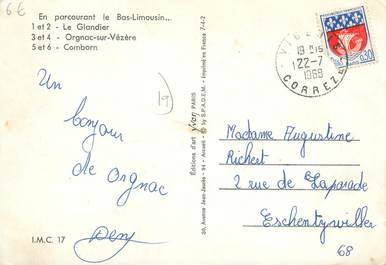 6€
En parcourant le Bas-Limousin...
1 et 2 - Le Glandier
3 et 4 - Orgnac-sur-Vézère
5 et 6 - Comborn
Un
bonjour
de Orgnac
I.M.C. 17
19
Éditions d'art Yvon PARIS
30, Avenue Jean-Jaurès - 94 - Arcueil - by S.P.A.D.E.M. - Imprimé en France 7-4-2
18 H
22-7
1968
CORREZE
0,30
Madame Augustine
Richert
2 rue de Laparade
Eschentzwiller
68